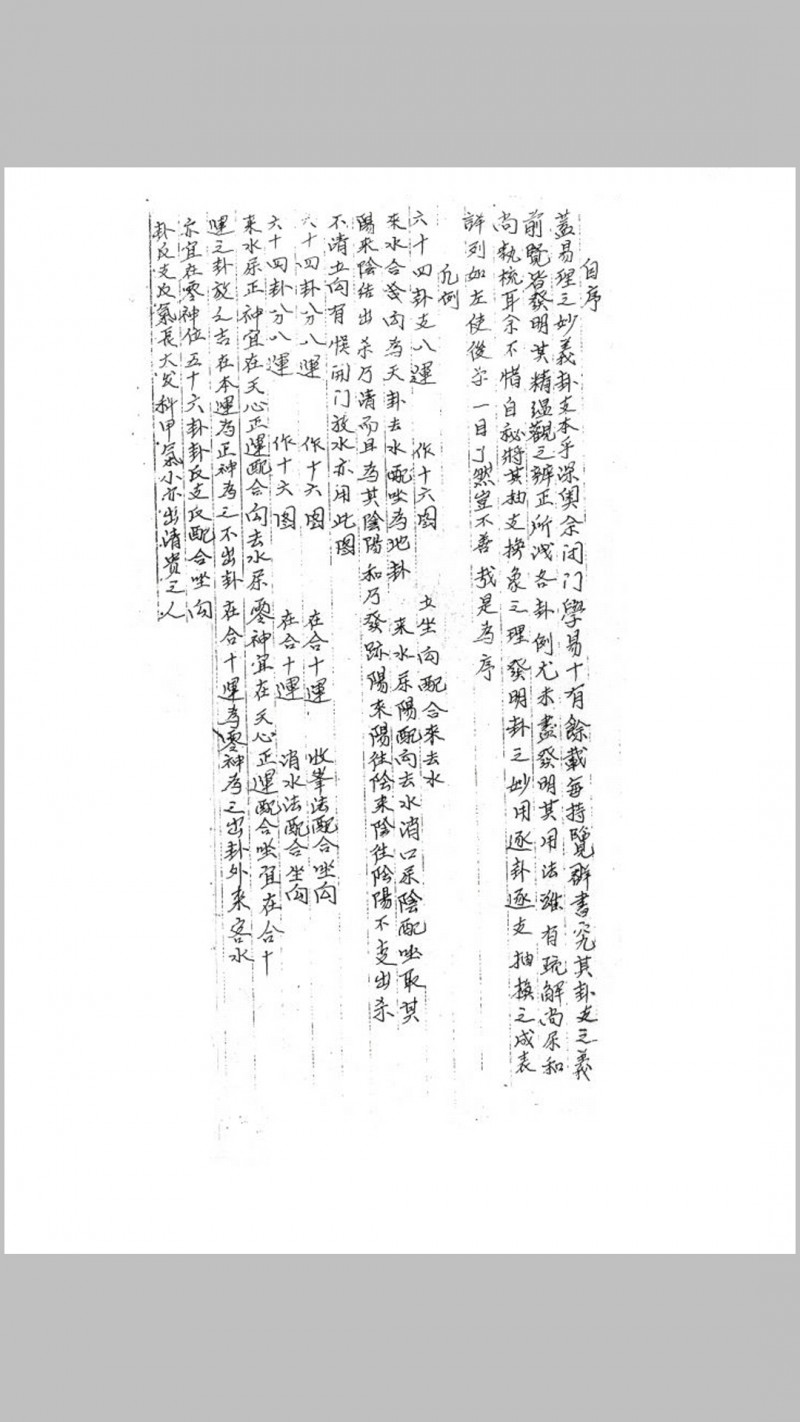 自序
蓋易理之妙義卦爻本乎深奧余闭门學易十有餘載每持覽群書究其卦爻之義
前賢皆發明其精蕴觀之辨正所識各卦例尤未盡發明其用法雖有疏解尚屬和
尚執梳耳余不惜自祕將其抽爻換象之理發明卦之妙用逐卦逐爻抽換之成表
詳列如左使後学一目了然豈不善哉是為序
凡例
六十四卦爻八運 作十六图 立坐向配合來去水
來水合發向為天卦去水配坐為地卦 來水屬陽配向去水消口屬陰配坐取其
陽來陰结出杀乃清而且為其陰陽和乃發跡陽來陽往陰來陰往陰陽不交出杀
不清立向有悮開门放水亦用此图
六十四卦分八運 作十六图 在合十運 收峯法配合坐向
六十四卦分八運 作十六图 在合十運 消水法配合坐向
來水屬正神宜在天心正運配合向去水屬零神宜在天心正運配合坐宜在合十
運之卦放之吉在本運為正神為之不出卦在合十運為零神為之出卦外來客水
亦宜在零神位五十六卦卦反爻反配合坐向
卦反爻反氣長大发科甲氣小亦出清贵之人